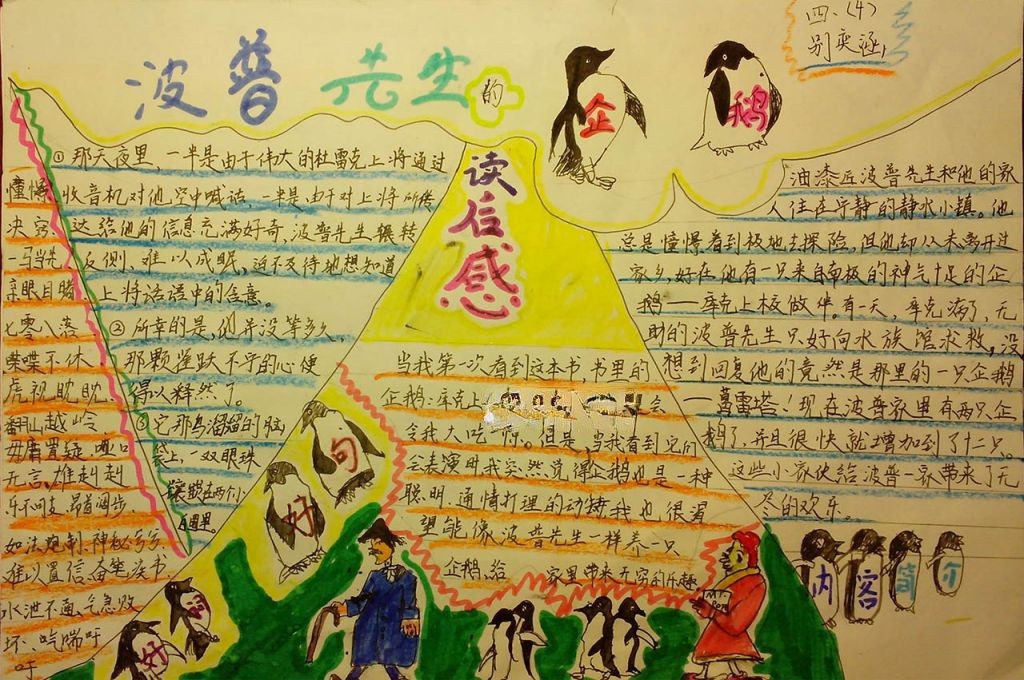 四、(4)
别奕涵
波普先生的企鹅
读后感
①那天夜里，一半是由于伟大的杜雷克上将通过
收音机对他空中喊话，一半是由于对上将所传
达给他的信息充满好奇，波普先生辗转
反侧、难以成眠，迫不及待地想知道
上将话语中的含意。
②所幸的是，他并没等多久，
那颗雀跃不宁的心便
得以释然了。
③它那乌溜溜的脑
袋上，一双眼珠
镶嵌在两个小
白圈里。
憧憬
决窍
一马当先
亲眼目睹
七零八落
喋喋不休
虎视眈眈
翻山越岭
毋庸置疑 哑口
无言、雄赳赳
乐不可支 昂首阔步
如法炮制 神秘兮兮
难以置信 奋笔疾书
水泄不通、气急败
坏、气喘吁
吁
好词
好句
当我第一次看到这本书，书里的
企鹅：库克上
会
令我大吃一惊。但是，当我看到它们
去表演时我突然觉得企鹅也是一种
聪明、通情打理的动物我也很渴
望能像波普先生一样养一只
企鹅，给家里带来无穷的乐趣
油漆匠波普先生和他的家
人住在宁静的静水小镇。他
总是憧憬着到极地去探险，但他却从未离开过
家乡好在他有一只来自南极的神气十足的企
鹅——库克上校做伴。有一天，库克病了，无
助的波普先生只好向水族馆求救，没
想到回复他的竟然是那里的一只企鹅
—葛雷塔！现在波普家里有两只企
鹅了，并且很快就增加到了十二只。
这些小家伙给波普一家带来了无
尽的欢乐。
内容简介